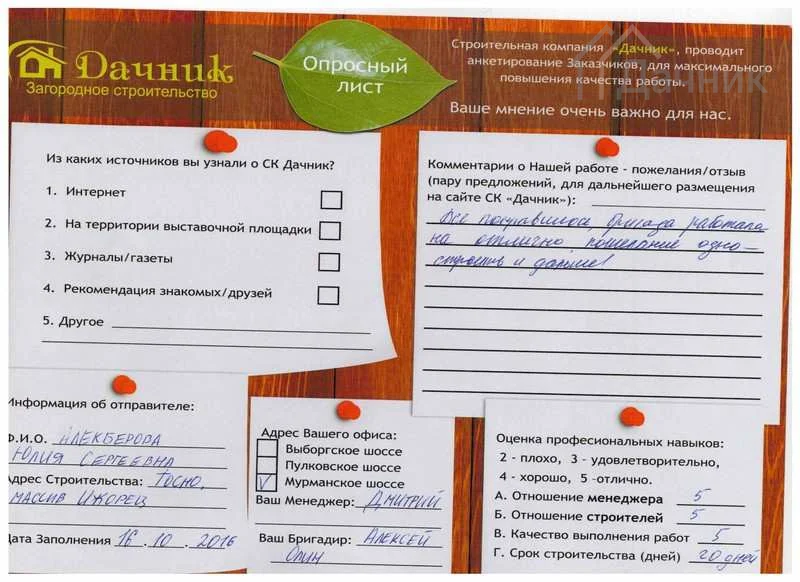 Дачник
Загородное строительство
Опросный
лист
Строительная компания «Дачник», проводит
анкетирование Заказчиков, для максимального
повышения качества работы.
Ваше мнение очень важно для нас.
дачник
Из каких источников вы узнали о СК Дачник?
1. Интернет
2. На территории выставочной площадки
3. Журналы/газеты
4. Рекомендация знакомых/друзей
5. Другое
Комментарии о Нашей работе - пожелания/отзыв
(пару предложений, для дальнейшего размещения
на сайте СК «Дачник»):
Все понравилось, бригада работала
на отлично, пожелание одно-
строить и дальше!
Информация об отправителе:
Ф.И.О. Алекберова
Юлия Сергеевна
Адрес Строительства: Тосно,
массив Ижорец
Дата Заполнения 16.10.2016
Адрес Вашего офиса:
Выборгское шоссе
Пулковское шоссе
V Мурманское шоссе
Ваш Менеджер: Дмитрий
Ваш Бригадир: Алексей
Оценка профессиональных навыков:
2 - плохо, 3 - удовлетворительно,
4 - хорошо, 5 -отлично.
А. Отношение менеджера 5
Б. Отношение строителей 5
В. Качество выполнения работ 5
Г. Срок строительства (дней) 20 дней